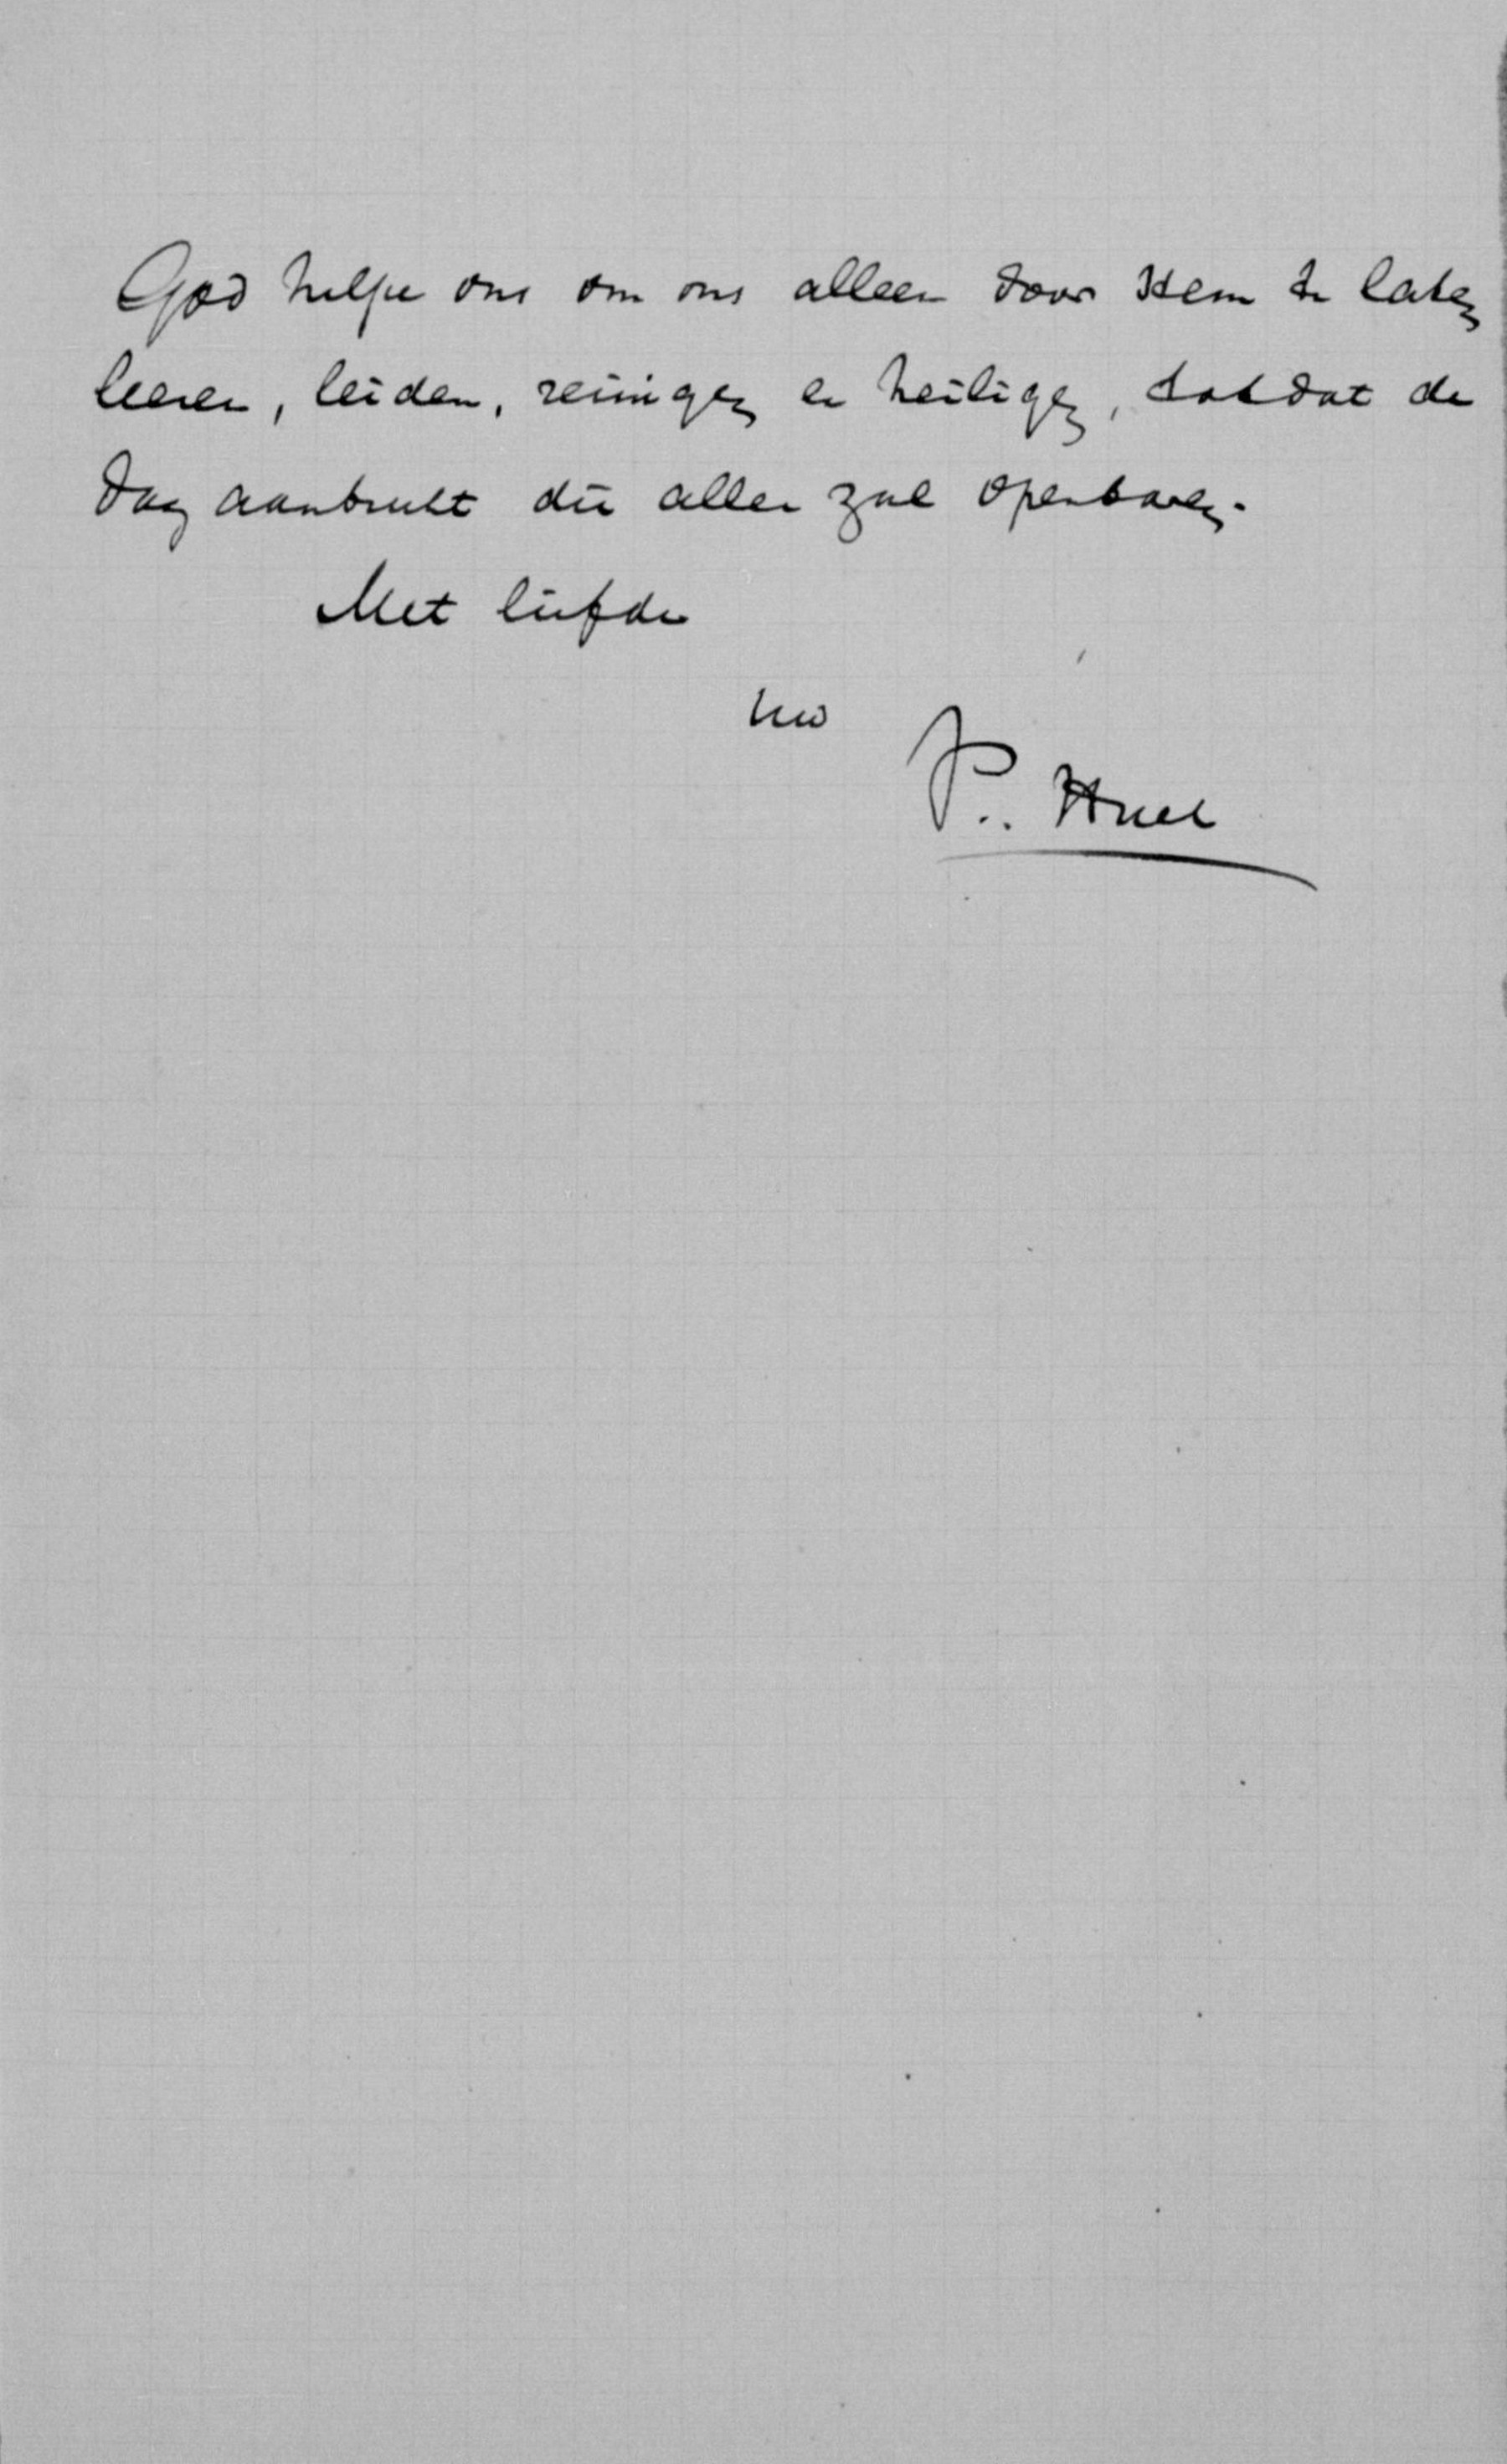 God helpe ons om ons alleen door Hem te laten
leeren, leiden, reinigen en heiligen, totdat de
dag aanbreekt die alles zal openbaren.
Met liefde
Uw
P.. Huet